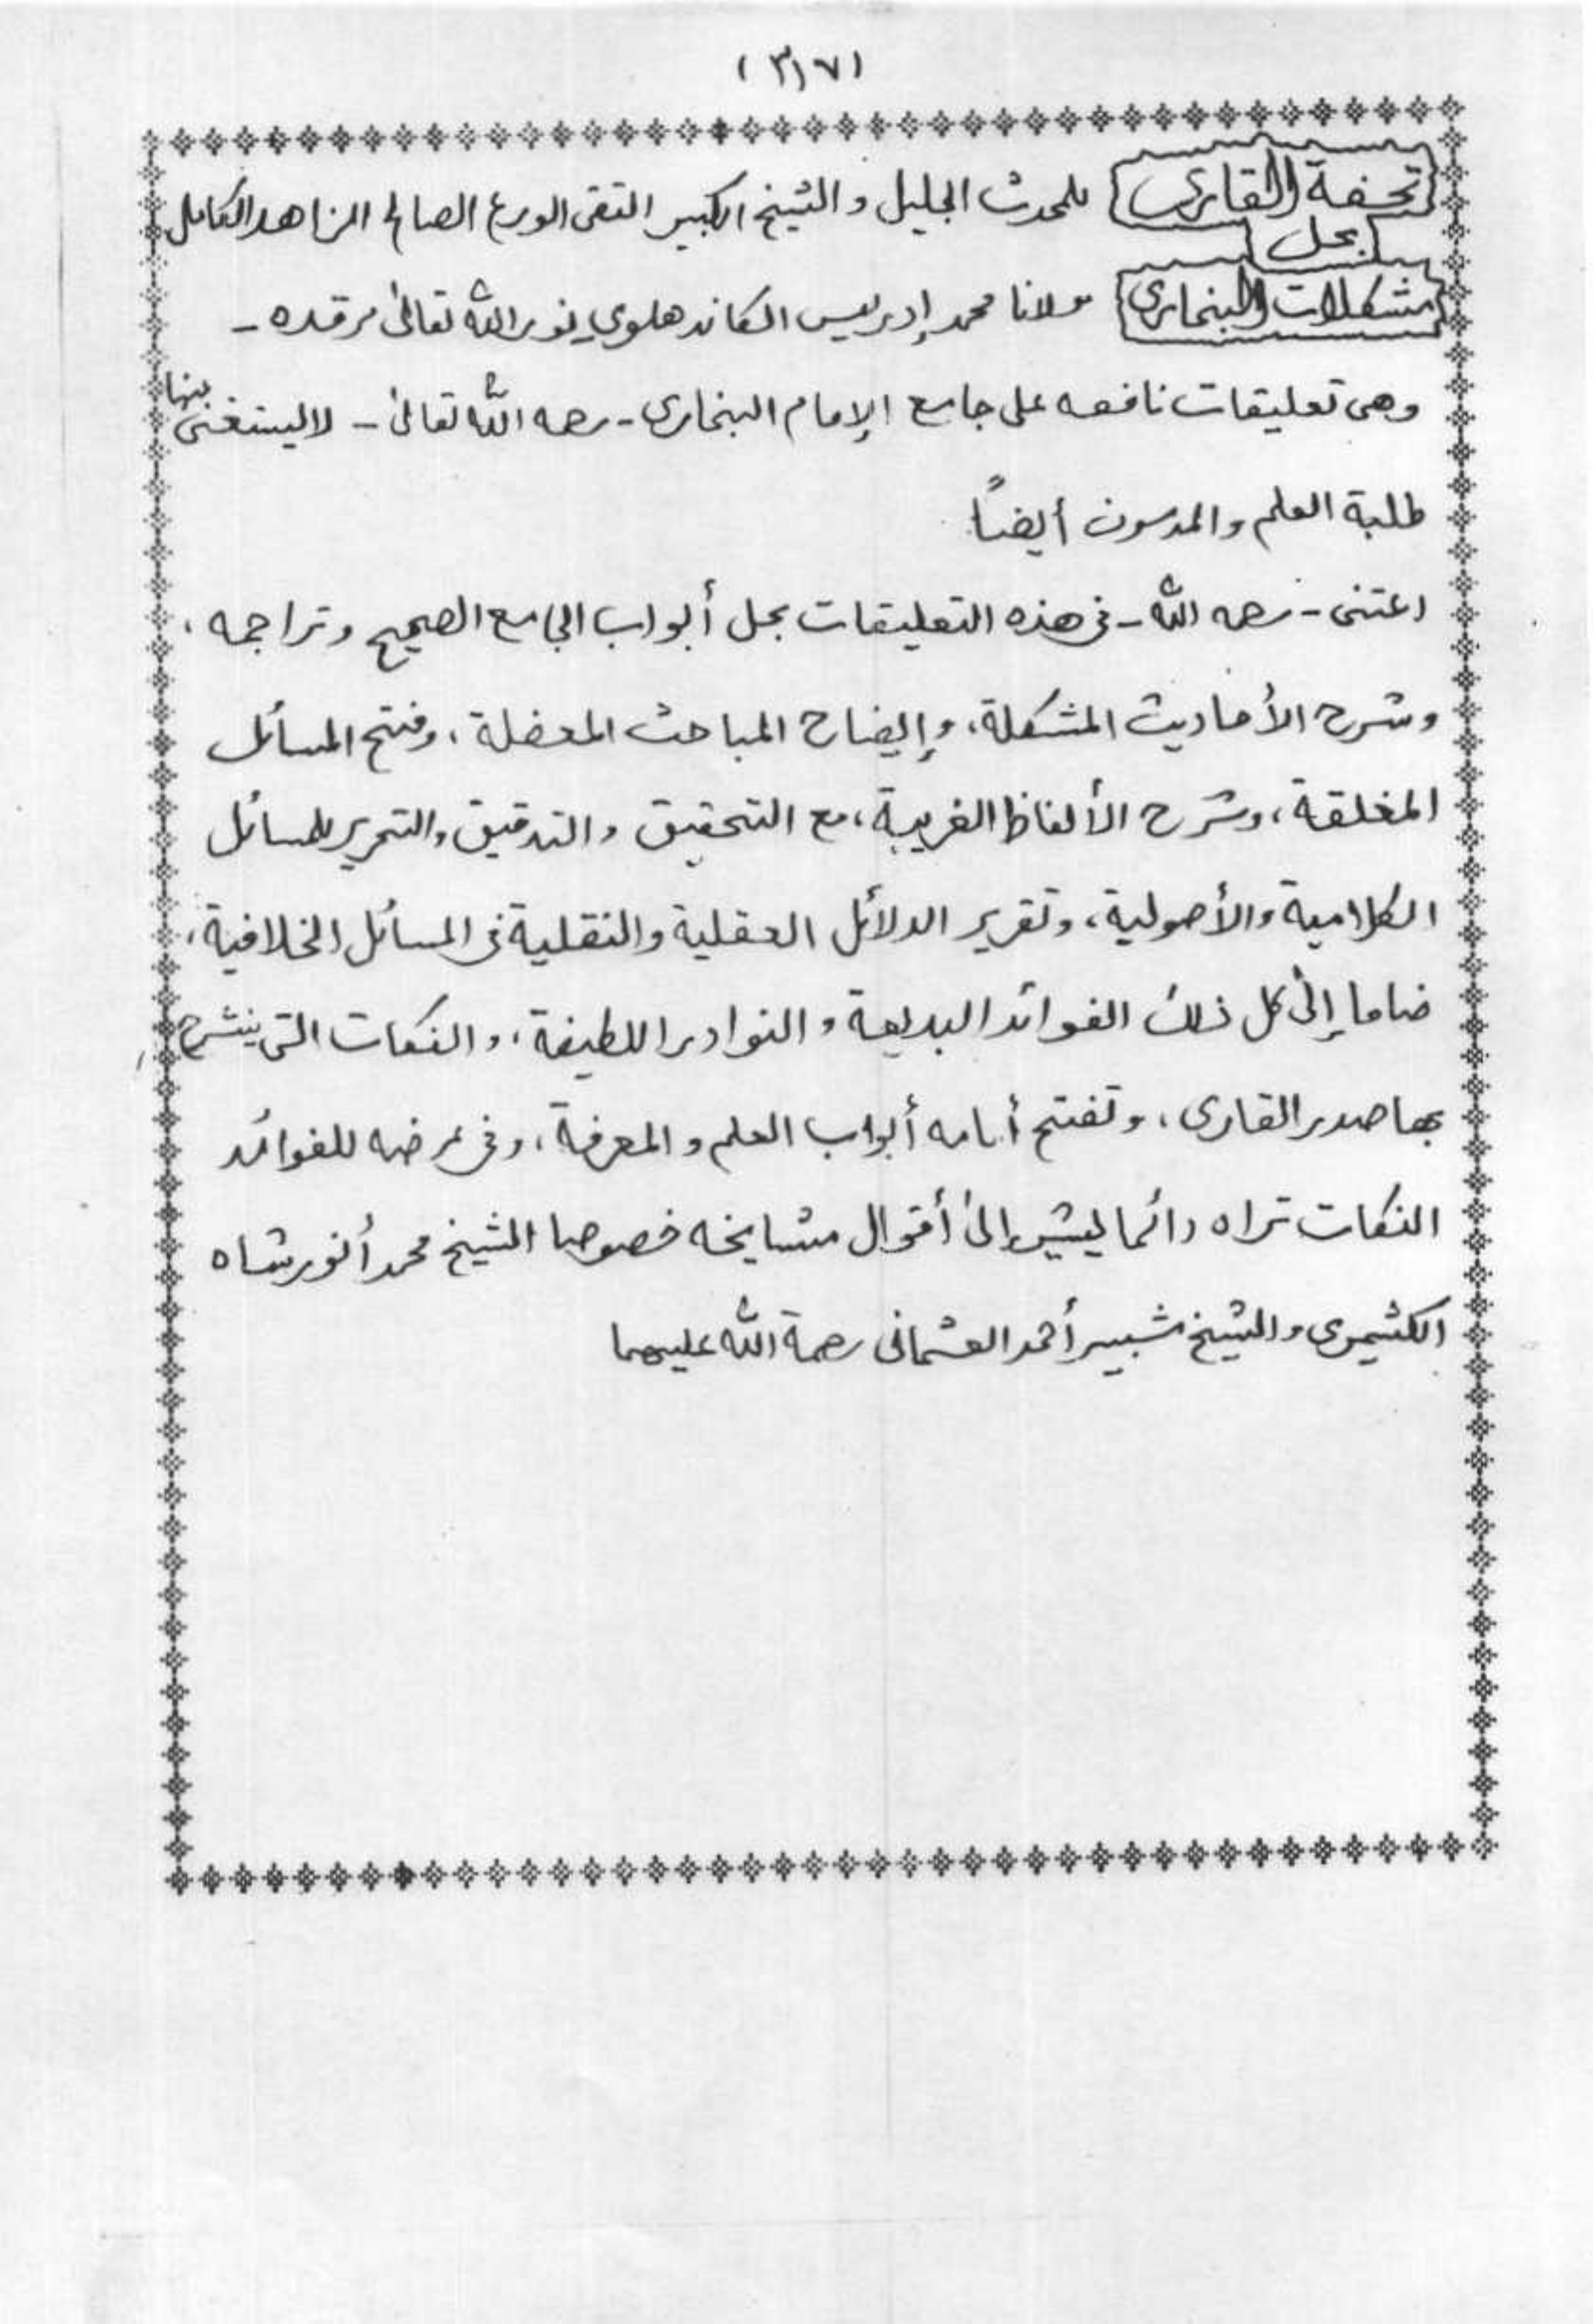 (٣١٧)
تحفة القارى للمحدث الجليل والشيخ الكبير التقى الورع الصالح الزاهد الكامل
بحل
مشكلات البخارى مولانا محمد إدريس الكاندهلوي نور الله تعالىٰ مرقده -
وهى تعليقات نافعه على جامع الإمام البخارى - رحمه الله تعالىٰ - لا يستغنى
طلبة العلم والمدرسون أيضاً
اعتنى - رحمه الله - فى هذه التعليقات بحل أبواب الجامع الصحيح وتراجمه ،
وشرح الأحاديث المشكلة، وإيضاح المباحث المعضلة ، وفتح المسائل
المغلقة ، وشرح الألفاظ الغريبة ، مع التحقيق والتدقيق والتحرير للمسائل
الكلامية والأصولية ، وتقرير الدلائل العقلية والنقلية فى المسائل الخلافية ،
ضاما إلىٰ كل ذلك الفوائد البديعة والنوادر اللطيفة ، والنكات التى ينشرح
بها صدر القارى ، وتفتح أمامه أبواب العلم والمعرفة ، وفى عرضه للفوائد
النكات تراه دائما يشير إلىٰ أقوال مشايخه خصوصا الشيخ محمد أنور شاه
الكشميرى والشيخ شبير أحمد العثمانى رحمة الله عليهما